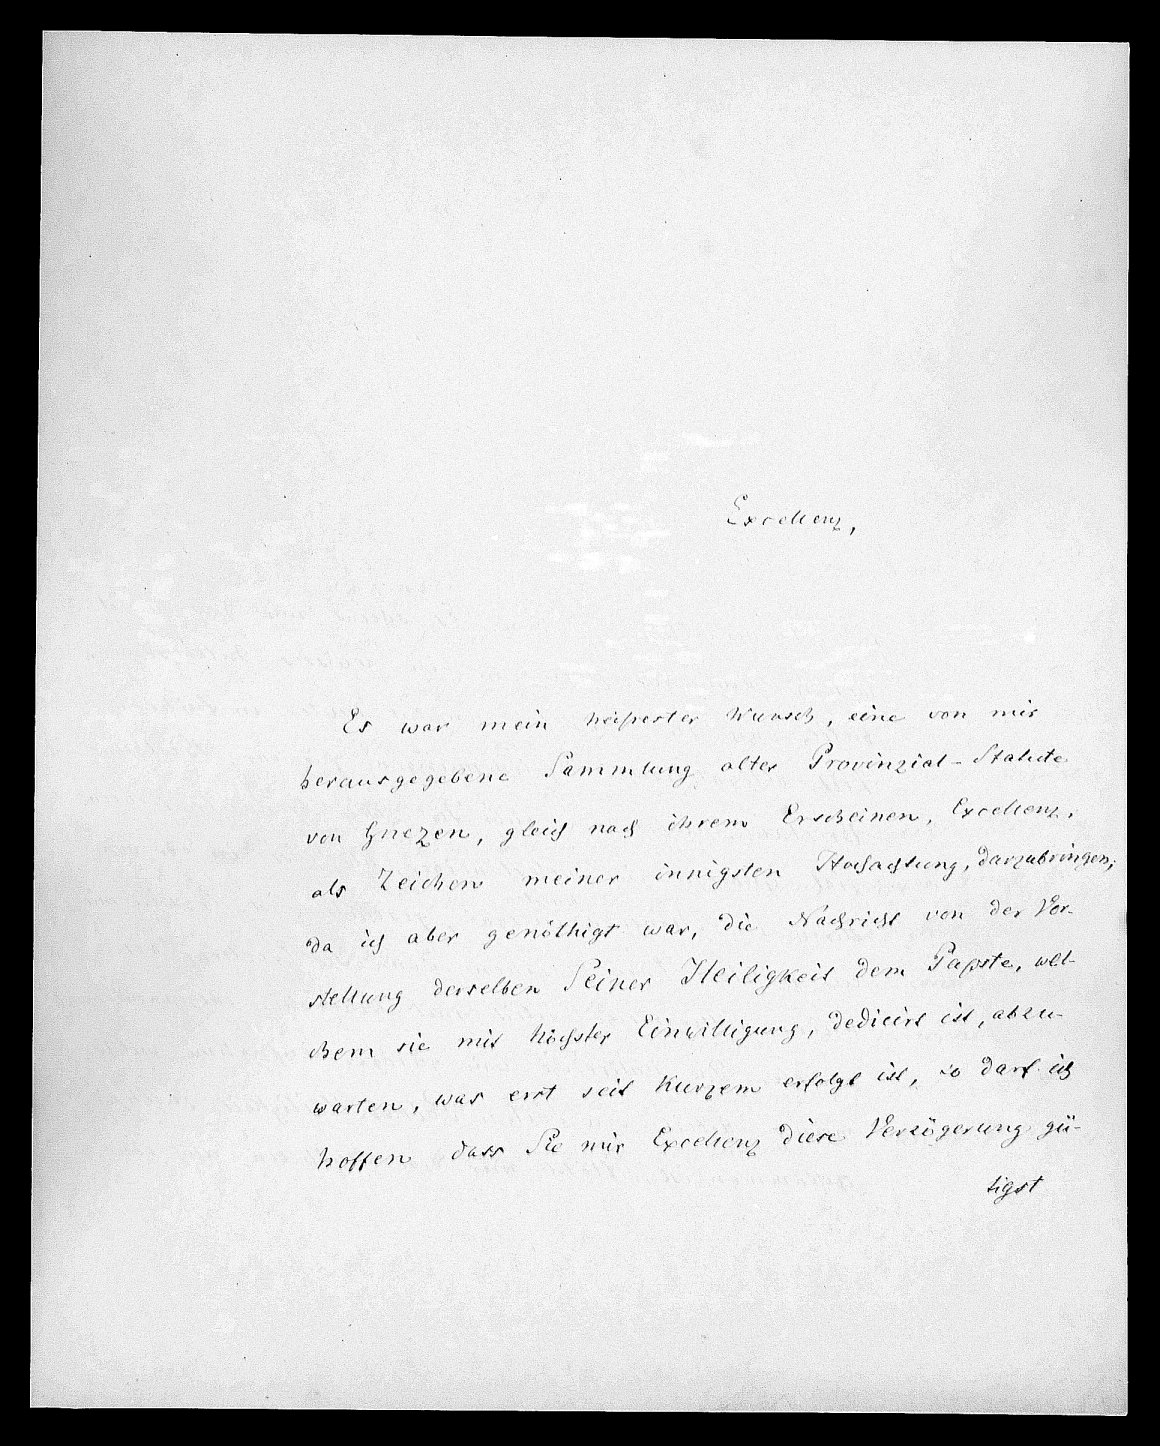 Excellenz,
Es war mein heißester Wunsch, eine von mir
herausgegebene Sammlung alter Provinzial-Statute
von Gnezen, gleich nach ihrem Erscheinen, Excellenz,
als Zeichen meiner innigsten Hochachtung, darzubringen;
da ich aber genöthigt war, die Nachricht von der Vor-
stellung derselben Seiner Heiligkeit dem Papste, wel-
chem sie mit höchster Einwilligung, dedicirt ist, abzu-
warten, was erst seit Kurzem erfolgt ist, so darf ich
hoffen dass Sie mir Excellenz diese Verzögerung gü-
tigst